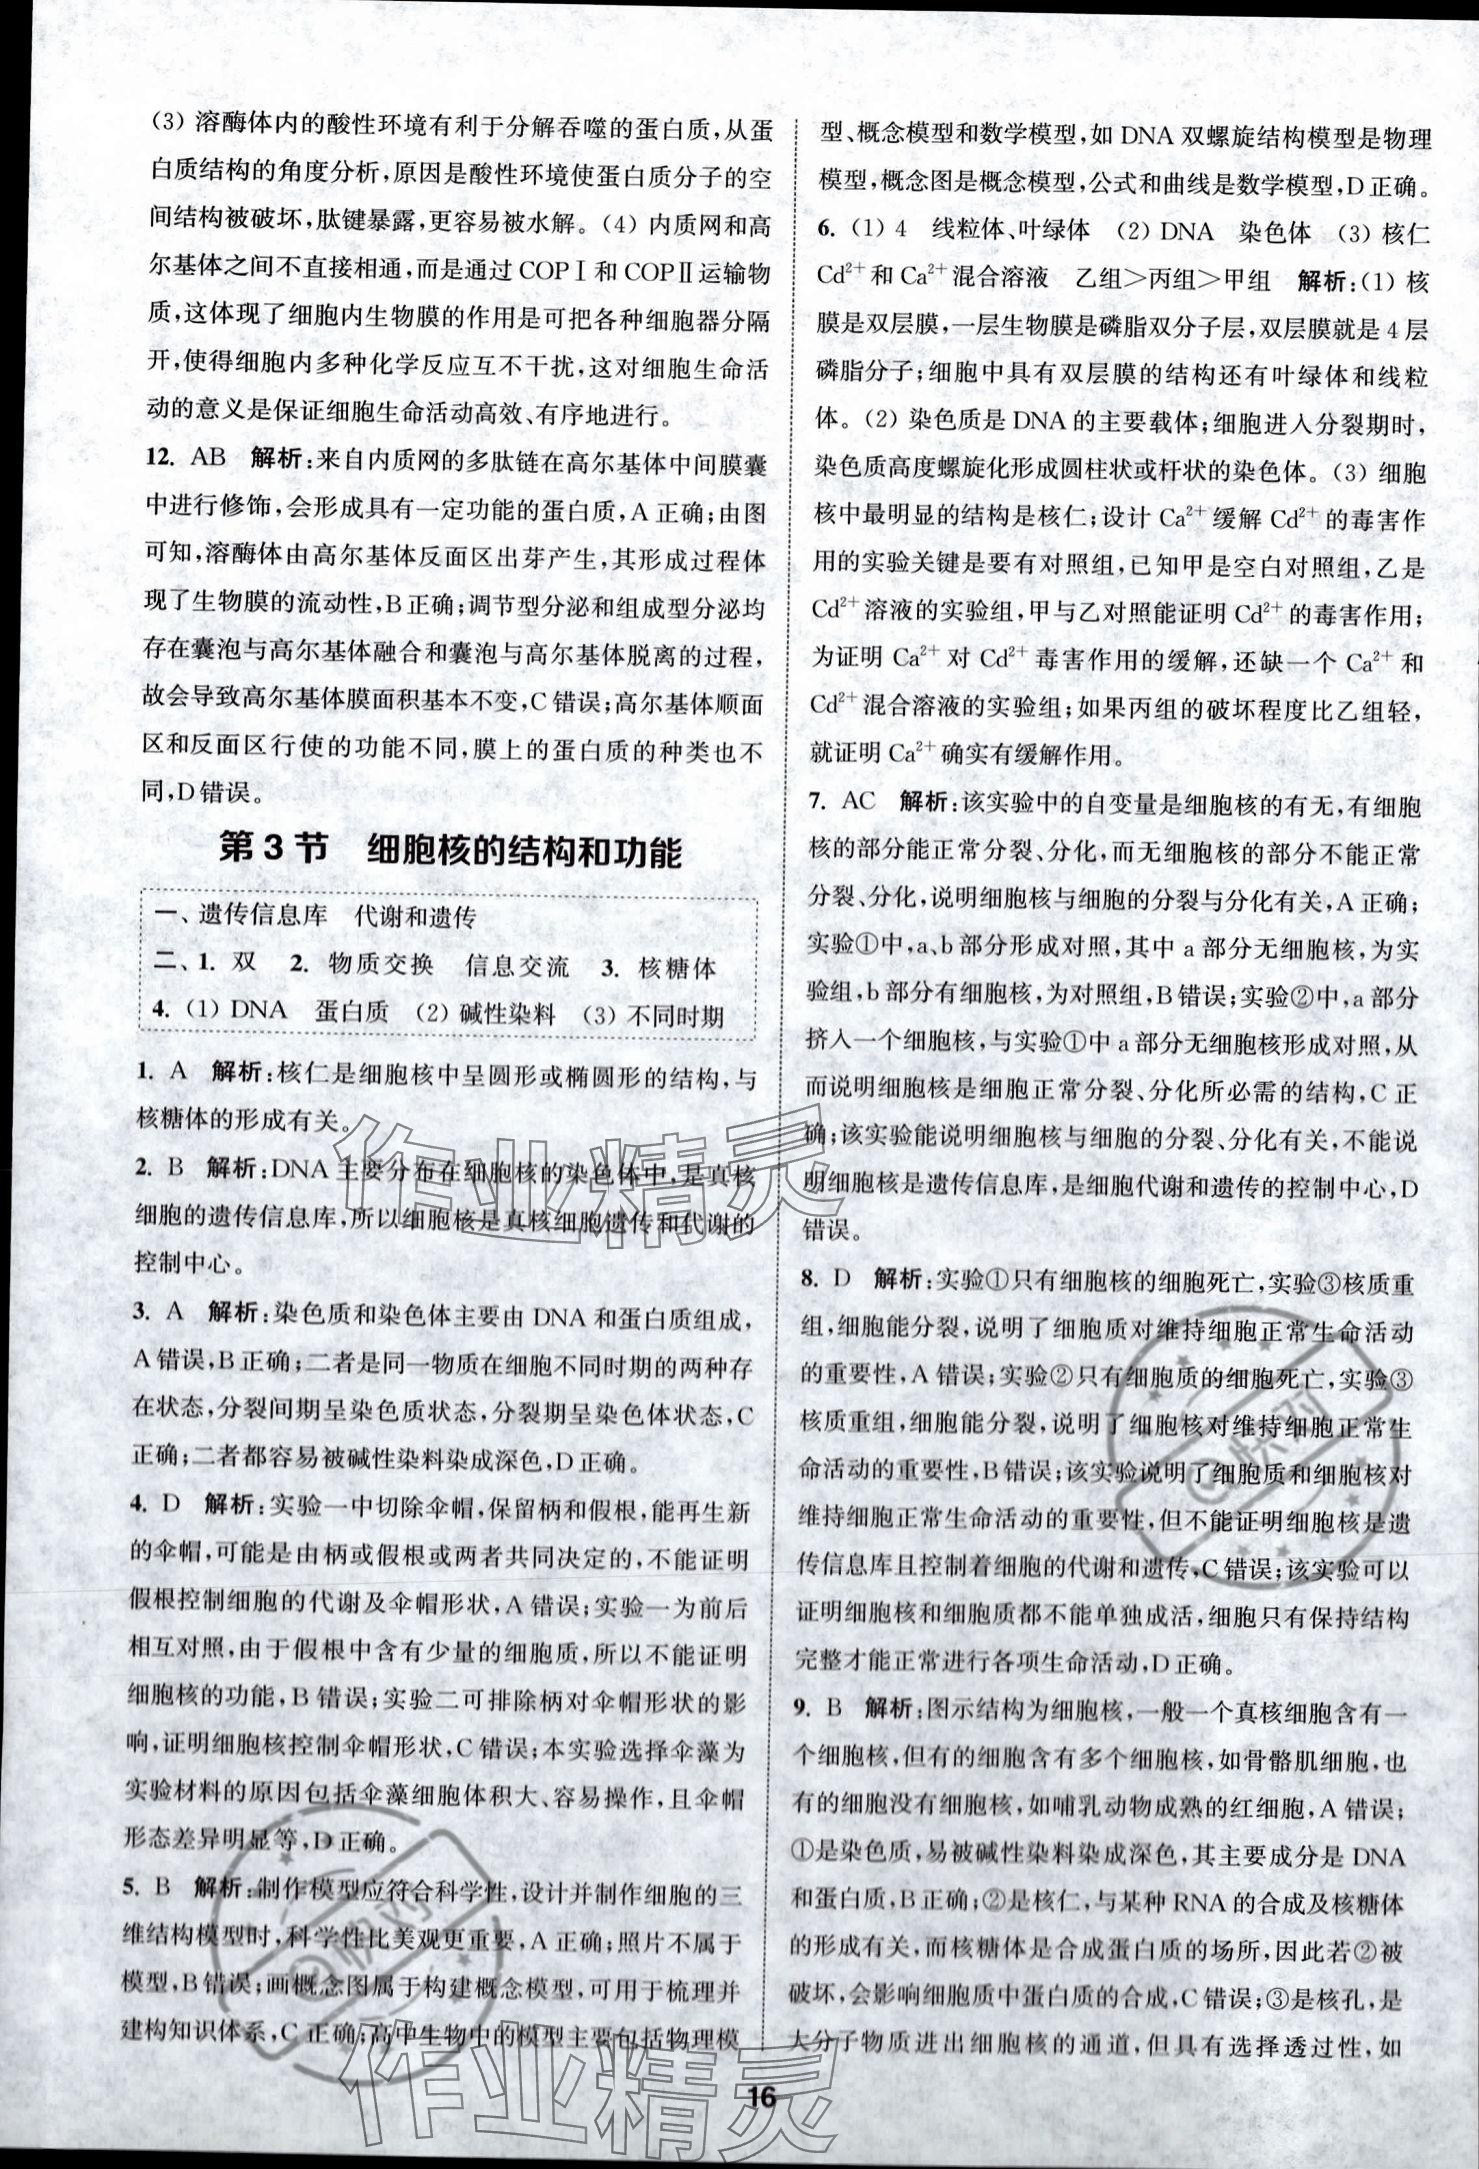 (3) 溶酶体内的酸性环境有利于分解吞噬的蛋白质,从蛋
白质结构的角度分析,原因是酸性环境使蛋白质分子的空
间结构被破坏,肽键暴露,更容易被水解。(4) 内质网和高
尔基体之间不直接相通,而是通过COPⅠ和COPⅡ运输物
质,这体现了细胞内生物膜的作用是可把各种细胞器分隔
开,使得细胞内多种化学反应互不干扰,这对细胞生命活
动的意义是保证细胞生命活动高效、有序地进行。
12. AB 解析:来自内质网的多肽链在高尔基体中间膜囊
中进行修饰,会形成具有一定功能的蛋白质,A正确;由图
可知,溶酶体由高尔基体反面区出芽产生,其形成过程体
现了生物膜的流动性,B正确;调节型分泌和组成型分泌均
存在囊泡与高尔基体融合和囊泡与高尔基体脱离的过程,
故会导致高尔基体膜面积基本不变,C错误;高尔基体顺面
区和反面区行使的功能不同,膜上的蛋白质的种类也不
同,D错误。
第3节 细胞核的结构和功能
一、遗传信息库 代谢和遗传
二、1. 双 2. 物质交换 信息交流 3. 核糖体
4. (1) DNA 蛋白质 (2) 碱性染料 (3) 不同时期
1. A 解析:核仁是细胞核中呈圆形或椭圆形的结构,与
核糖体的形成有关。
2. B 解析:DNA主要分布在细胞核的染色体中,是真核
细胞的遗传信息库,所以细胞核是真核细胞遗传和代谢的
控制中心。
3. A 解析:染色质和染色体主要由DNA和蛋白质组成,
A错误,B正确;二者是同一物质在细胞不同时期的两种存
在状态,分裂间期呈染色质状态,分裂期呈染色体状态,C
正确;二者都容易被碱性染料染成深色,D正确。
4. D 解析:实验一中切除伞帽,保留柄和假根,能再生新
的伞帽,可能是由柄或假根或两者共同决定的,不能证明
假根控制细胞的代谢及伞帽形状,A错误;实验一为前后
相互对照,由于假根中含有少量的细胞质,所以不能证明
细胞核的功能,B错误;实验二可排除柄对伞帽形状的影
响,证明细胞核控制伞帽形状,C错误;本实验选择伞藻为
实验材料的原因包括伞藻细胞体积大、容易操作,且伞帽
形态差异明显等,D正确。
5. B 解析:制作模型应符合科学性,设计并制作细胞的三
维结构模型时,科学性比美观更重要,A正确;照片不属于
模型,B错误;画概念图属于构建概念模型,可用于梳理并
建构知识体系,C正确;高中生物中的模型主要包括物理模
型、概念模型和数学模型,如DNA双螺旋结构模型是物理
模型,概念图是概念模型,公式和曲线是数学模型,D正确。
6. (1) 4 线粒体、叶绿体 (2) DNA 染色体 (3) 核仁
Cd²⁺和Ca²⁺混合溶液 乙组>丙组>甲组 解析:(1) 核
膜是双层膜,一层生物膜是磷脂双分子层,双层膜就是4层
磷脂分子;细胞中具有双层膜的结构还有叶绿体和线粒
体。(2) 染色质是DNA的主要载体;细胞进入分裂期时,
染色质高度螺旋化形成圆柱状或杆状的染色体。(3) 细胞
核中最明显的结构是核仁;设计Ca²⁺缓解Cd²⁺的毒害作
用的实验关键是要有对照组,已知甲是空白对照组,乙是
Cd²⁺溶液的实验组,甲与乙对照能证明Cd²⁺的毒害作用;
为证明Ca²⁺对Cd²⁺毒害作用的缓解,还缺一个Ca²⁺和
Cd²⁺混合溶液的实验组;如果丙组的破坏程度比乙组轻,
就证明Ca²⁺确实有缓解作用。
7. AC 解析:该实验中的自变量是细胞核的有无,有细胞
核的部分能正常分裂、分化,而无细胞核的部分不能正常
分裂、分化,说明细胞核与细胞的分裂与分化有关,A正确;
实验①中,a、b部分形成对照,其中a部分无细胞核,为实
验组,b部分有细胞核,为对照组,B错误;实验②中,a部分
挤入一个细胞核,与实验①中a部分无细胞核形成对照,从
而说明细胞核是细胞正常分裂、分化所必需的结构,C正
确;该实验能说明细胞核与细胞的分裂、分化有关,不能说
明细胞核是遗传信息库,是细胞代谢和遗传的控制中心,D
错误。
8. D 解析:实验①只有细胞核的细胞死亡,实验③核质重
组,细胞能分裂,说明了细胞质对维持细胞正常生命活动
的重要性,A错误;实验②只有细胞质的细胞死亡,实验③
核质重组,细胞能分裂,说明了细胞核对维持细胞正常生
命活动的重要性,B错误;该实验说明了细胞质和细胞核对
维持细胞正常生命活动的重要性,但不能证明细胞核是遗
传信息库且控制着细胞的代谢和遗传,C错误;该实验可以
证明细胞核和细胞质都不能单独成活,细胞只有保持结构
完整才能正常进行各项生命活动,D正确。
9. B 解析:图示结构为细胞核,一般一个真核细胞含有一
个细胞核,但有的细胞含有多个细胞核,如骨骼肌细胞,也
有的细胞没有细胞核,如哺乳动物成熟的红细胞,A错误;
①是染色质,易被碱性染料染成深色,其主要成分是DNA
和蛋白质,B正确;②是核仁,与某种RNA的合成及核糖体
的形成有关,而核糖体是合成蛋白质的场所,因此若②被
破坏,会影响细胞质中蛋白质的合成,C错误;③是核孔,是
大分子物质进出细胞核的通道,但具有选择透过性,如
16
作业精灵
作业精灵